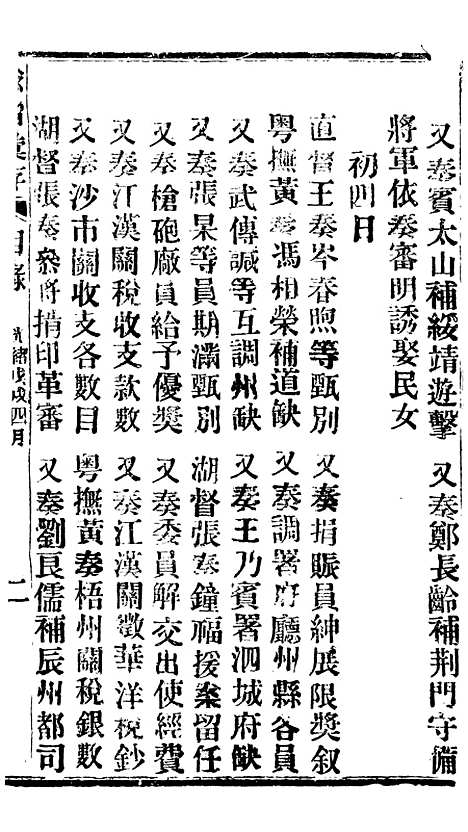 又奏賓太山補綏靖遊擊　又奏鄭長齡補荆門守備
將軍依奏審明誘娶民女
初四日
直督王奏岑春煦等甄別　又奏捐賑員紳展限獎叙
粤撫黃奏馮相榮補道缺　又奏調署府廳州縣各員
又奏武傳諴等互調州缺　又奏王乃賓署泗城府缺
又奏張杲等員期滿甄別　湖督張奏鐘福援案留任
又奏槍砲廠員給予優獎　又奏委員解交出使經費
又奏江漢關稅收支款數　又奏江漢關徵華洋稅鈔
又奏沙市關收支各數目　粤撫黃奏梧州關稅銀數
湖督張奏叅將捐印革審　又奏劉良儒補辰州都司
目錄　光緖戊戌四月　二